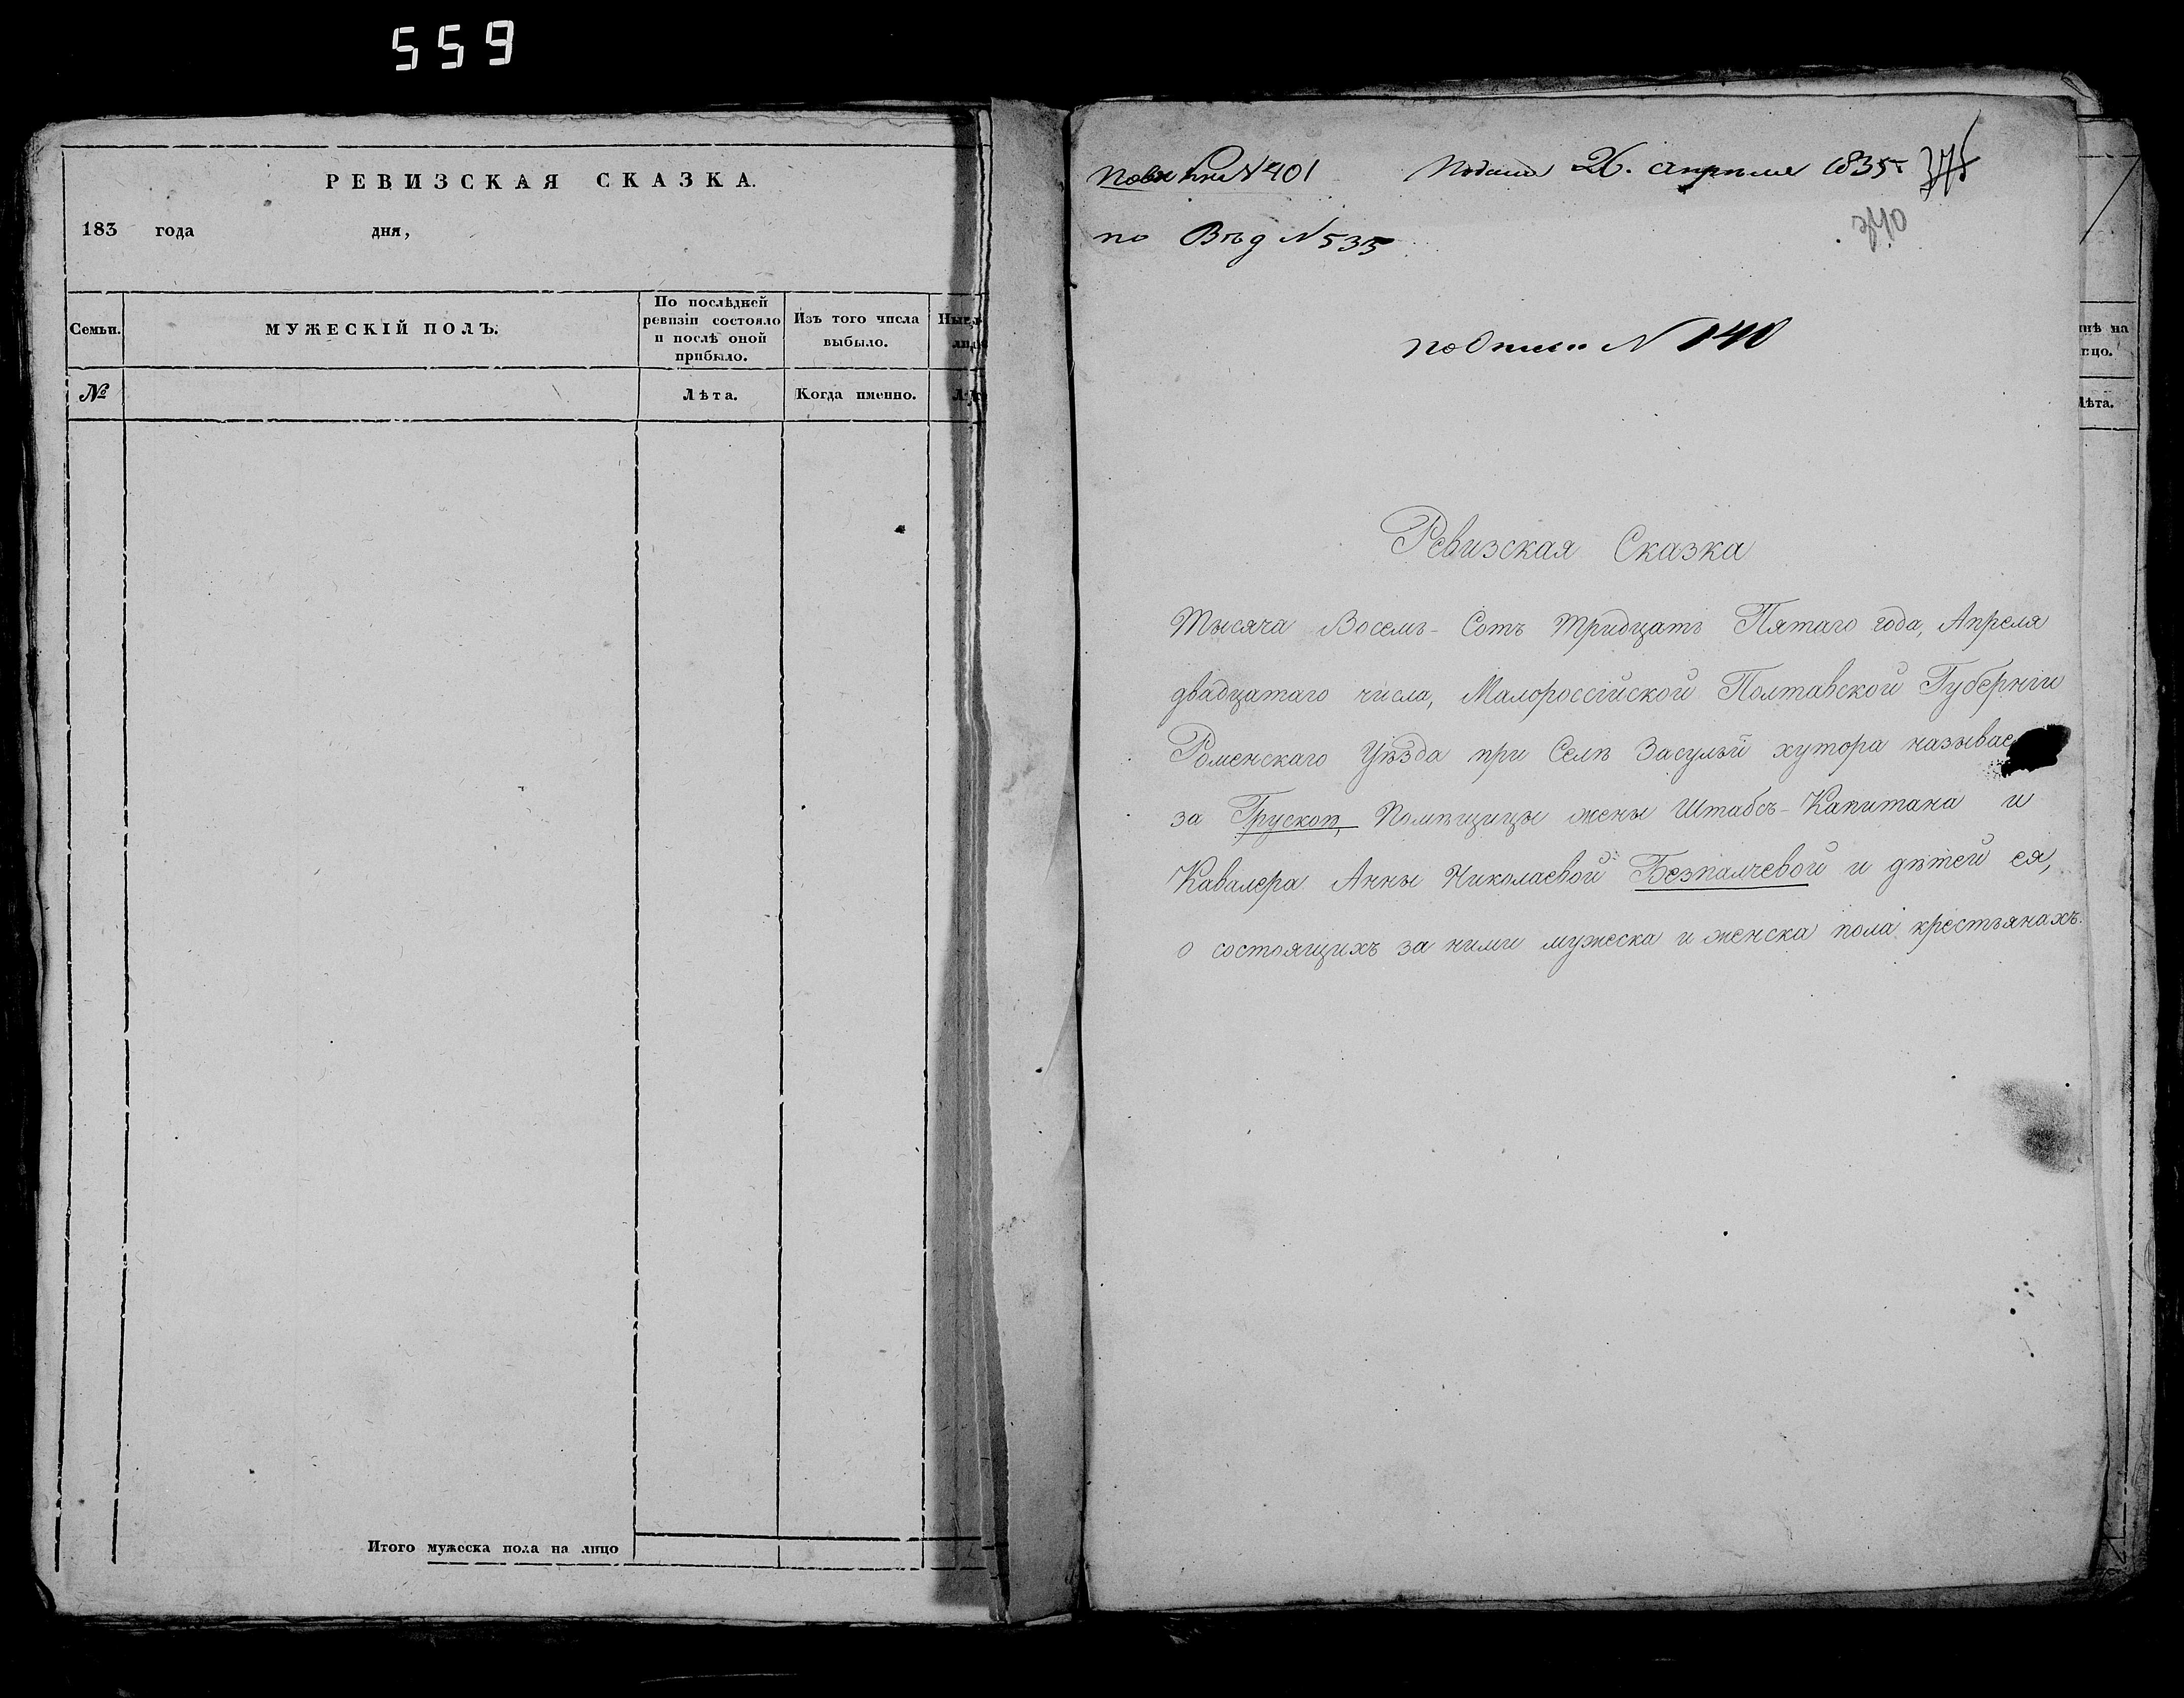 559
РЕВИЗСКАЯ СКАЗКА.
183 года дня,
Семьи.
МУЖЕСКІЙ ПОЛЪ.
По послѣдней
ревизіи состояло
и послѣ оной
прибыло.
Изъ того числа
выбыло.
№
Лѣта.
Когда именно.
Итого мужеска пола на лицо
N 401
Подана 26. апрѣля 1835
340
по Вѣд N 535
N 140
Ревизская Сказка
Тысяча Восемь-Сотъ тридцать Пятаго года, Апреля
двадцатаго числа, Малороссійской Полтавской Губерніи
Роменскаго Уѣзда при Селѣ Засульи хутора называе
за Грускоп, Помѣщицы жены Штабсъ-Капитана и
Кавалера Анны Николаевой Безпалчевой и дѣтей ея,
о состоящихъ за ними мужеска и женска пола крестьянахъ.
нѣ на
цо.
Лѣта.